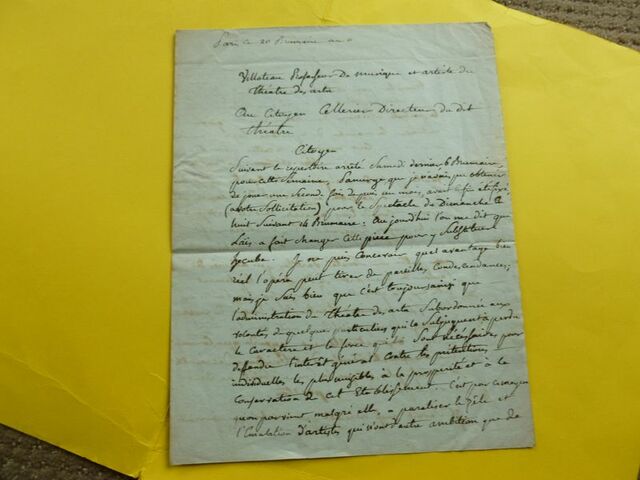 Paris le 20 Brumaire an
Villoteau Professeur De musique et artiste du
Théatre des arts
Au Citoyen Cellerier Directeur du dit
théatre
Citoyen
Suivant le repertoire arrêté Samedi dernier 6 Brumaire
pour cette Semaine, que j'avais pu obtenir
de jouer une Seconde fois depuis un mois, avait été fixé
(à votre Sollicitation) pour le Spectacle du Dimanche
huit Suivant 14 Brumaire: aujourd'hui l'on me dit que
Laïs a fait changer cette pièce pour y Substituer
hecube. Je ne puis concevoir quel avantage bien
réel l'opéra peut tirer de pareilles condescendances;
mais je Sais bien que c'est toujours ainsi que
l'administration du Théatre des arts Subordonnée aux
volontés de quelques particuliers qui la Subjuguent a perdu
le caractere et la force qui lui Sont nécessaires pour
deffendre l'intérêt général contre les prétentions
individuelles les plus nuisibles à la prosperité et à la
conservation de cet Etablissement. C'est par ce moyen
qu'on parvient malgré elle, a paraliser le Zèle et
l'Emulation d'artistes qui n'ont d'autre ambition que de